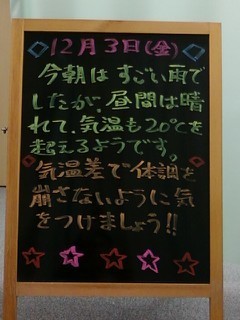 12月3日(金)
今朝は すごい雨で
したが、昼間は晴
れて、気温も20℃を
超えるようです。
気温差で体調を
崩さないように気
をつけましょう!!